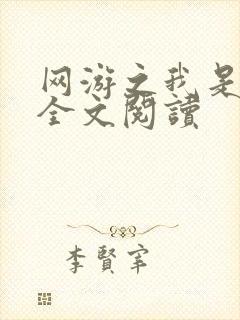 网游之我是
全文閱讀
李賢宰